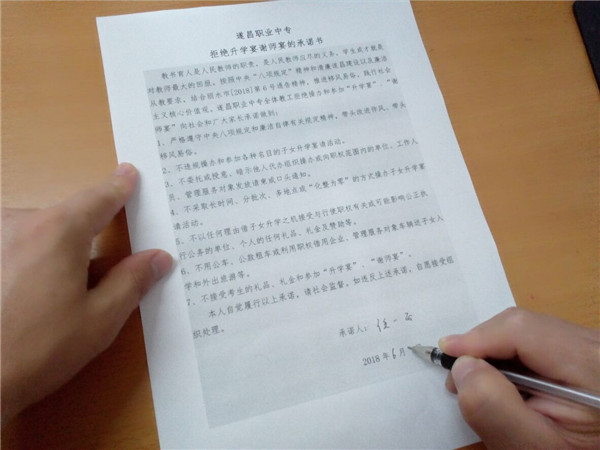 遂昌职业中专
拒绝升学宴谢师宴的承诺书
教书育人是人民教师的职责，是人民教师应尽的义务，学生成才就是
对教师最大的回报。按照中央“八项规定”精神和清廉遂昌建设以及廉洁
从教要求，结合丽水市[2018]第6号通告精神，推进移风易俗，践行社会
主义核心价值观，遂昌职业中专全体教工拒绝操办和参加“升学宴”、“谢
师宴”向社会和广大家长承诺做到：
1、严格遵守中央八项规定和廉洁自律有关规定精神，带头改进作风，带头
移风易俗。
2、不违规操办和参加各种名目的子女升学宴请活动。
3、不委托或授意、暗示他人代办组织操办或向职权范围内的单位、工作人
员、管理服务对象发放请柬或口头通知。
4、不采取长时间、分批次、多地点或“化整为零”的方式操办子女升学宴
请活动。
5、不以任何理由借子女升学之机接受与行使职权有关或可能影响公正执
行公务的单位、个人的任何礼品、礼金及赞助等。
6、不用公车、公款租车或利用职权借用企业、管理服务对象车辆送子女入
学和外出旅游等。
7、不接受考生的礼品、礼金和参加“升学宴”、“谢师宴”。
本人自觉履行以上承诺，请社会监督。如违反上述承诺，自愿接受组
织处理。
承诺人：
2018年6月